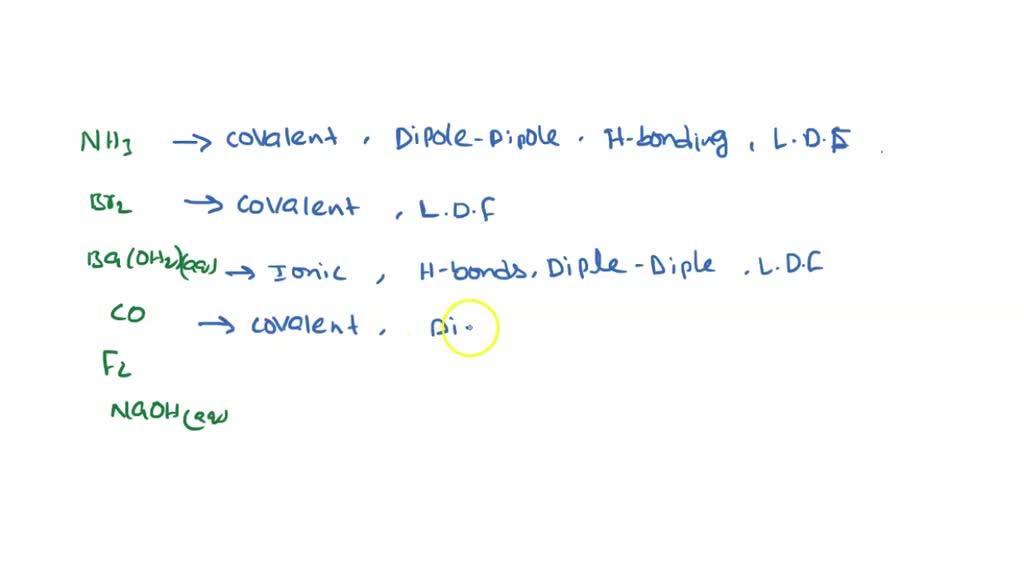 NH3 → covalent, Dipole-Dipole, H-bonding, L.D.F
Br2 → covalent, L.D.F
Ba(OH2)(aq) → Ionic, H-bonds, Diple-Diple, L.D.F
CO → covalent, Di
F2
NaOH(aq)